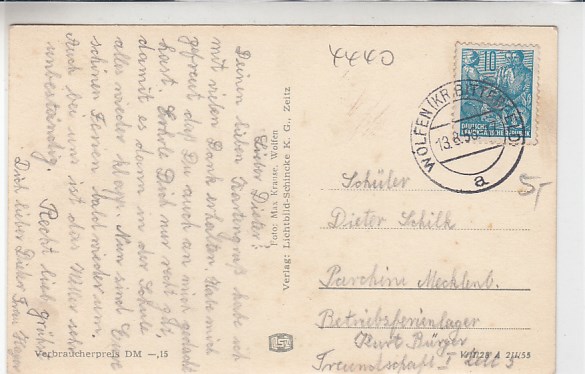 4440
10
WOLFEN (KR. BITTERFELD)
13.8.56
a
DEUTSCHE
Lieber Dieter!
Deinen lieben Kartengruß habe ich
mit vielen Dank erhalten. Habe mich
gefreut daß Du auch an mich gedacht
hast. Erhole Dich nur recht gut,
damit es dann in der Schule
alles wieder klappt. Nun sind Eure
schönen Ferien bald wieder um.
Auch bei uns ist das Wetter sehr
unbeständig. Recht lieb grüßt
Dich lieber Dieter Frau
Foto: Max Krause, Wolfen
Verlag: Lichtbild-Schincke K. G., Zeitz
Schüler
Dieter Schilk
Parchim Mecklenb.
Betriebsferienlager
Kurt Bürger
Freundschaft I Zelt 3
5,-
Verbraucherpreis DM —,15
V/11/28 A 211/55